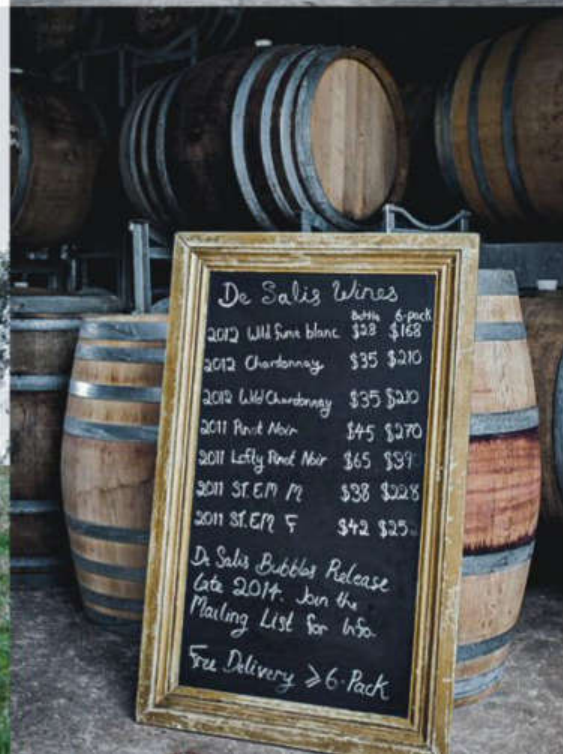 De Salis Wines
Bottle 6-pack
2012 Wild fumé blanc $28 $168
2012 Chardonnay $35 $210
2012 Wild Chardonnay $35 $210
2011 Pinot Noir $45 $270
2011 Lofty Pinot Noir $65
2011 ST.EM M $38 $228
2011 ST.EM F $42
De Salis Bubbles Release
Late 2014. Join the
Mailing List for Info.
Free Delivery ≥ 6-Pack